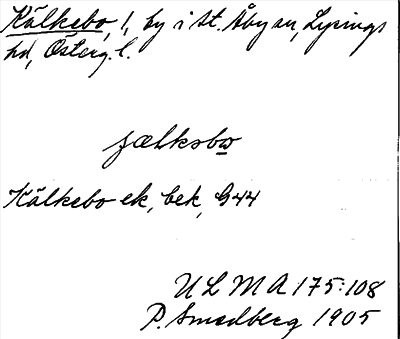 Kälkebo, 1, by i St. Åby sn, Lysings
hd, Österg. l.
fælksbω
Kälkebo ek, bek, G44
ULMA 175:108
P. Smedberg 1905